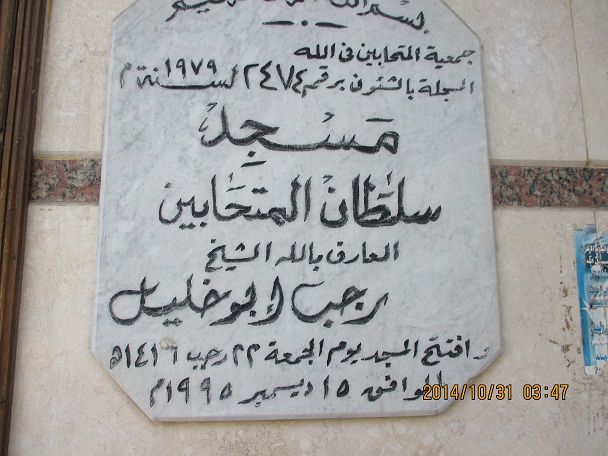 بسم الله الرحمن الرحيم
جمعية المتحابين فى الله
المسجلة بالشئون برقم ٢٤٧٤ لسنة ١٩٧٩م
مسجد
سلطان المتحابين
العارف بالله الشيخ
رجب ابو خليل
وافتتح المسجد يوم الجمعة ٢٢ رجب ١٤١٦ه
الموافق ١٥ ديسمبر ١٩٩٥م
2014/10/31 03:47